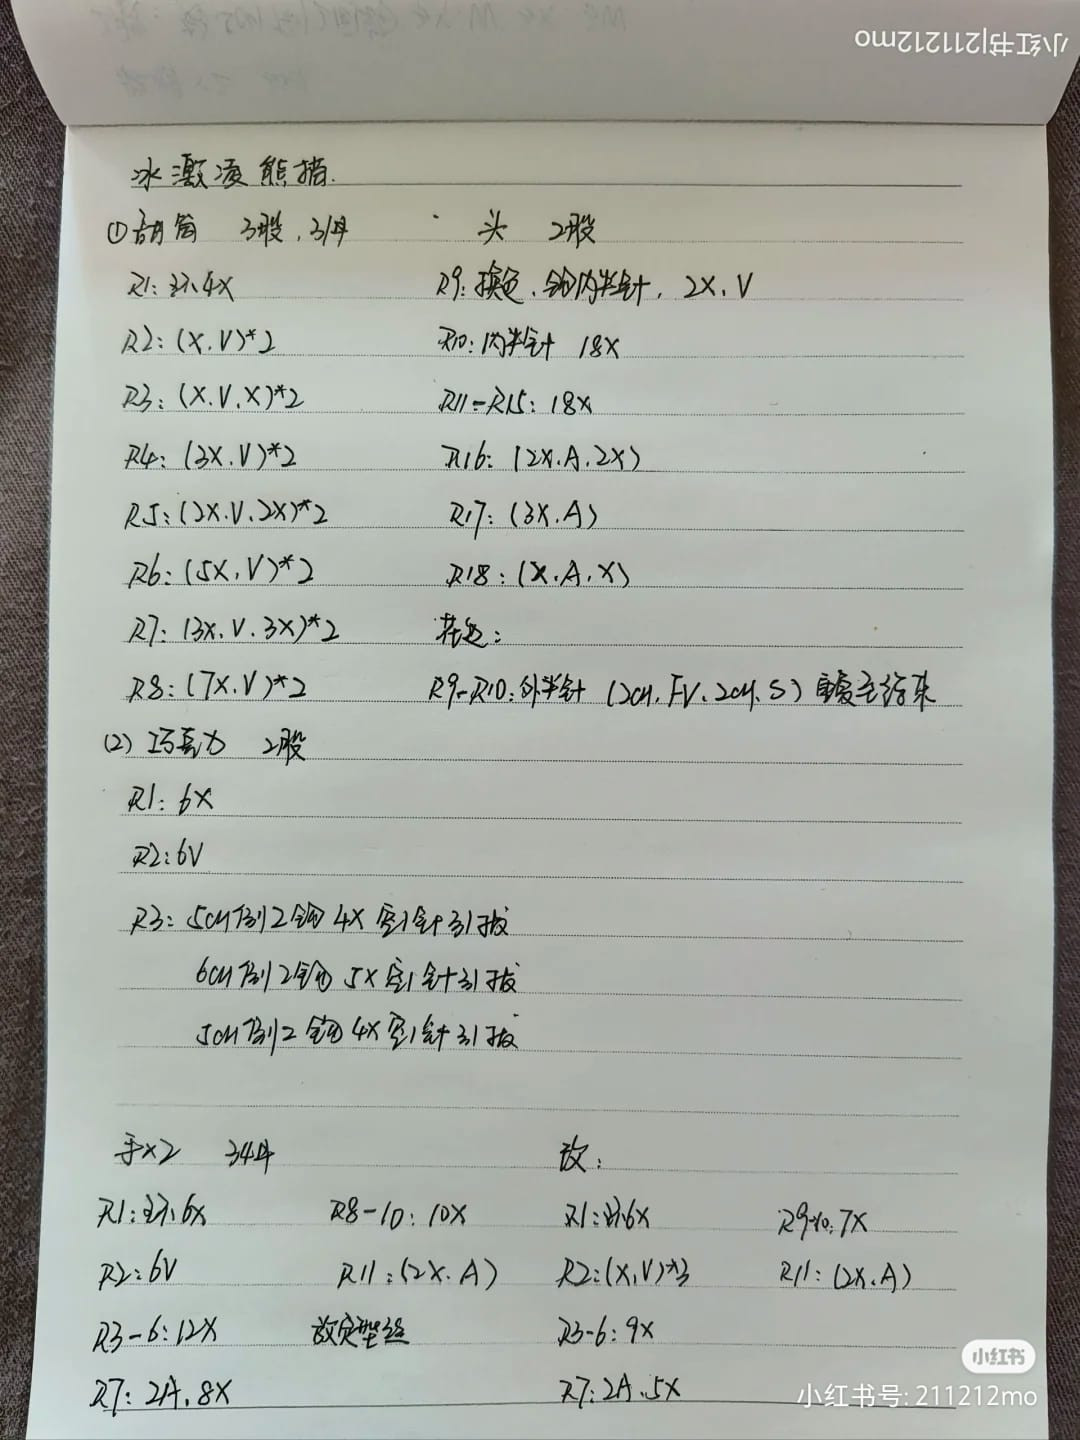 小红书|211212mo
冰激凌熊猫.
①甜筒 3股.3/4 头 2股
R1:环.4X R9:换色.钩内半针, 2X.V
R2:(X.V)*2 R10:内半针 18X
R3:(X.V.X)*2 R11-R15:18X
R4:(3X.V)*2 R16:(2X.A.2X)
R5:(2X.V.2X)*2 R17:(3X.A)
R6:(5X.V)*2 R18:(X.A.X)
R7:(3X.V.3X)*2 花边:
R8:(7X.V)*2 R9-R10:外半针 (2CH.FV.2CH.S)重复至结束
(2)巧克力 2股
R1:6X
R2:6V
R3:5CH倒2钩4X空1针引拔
6CH倒2钩5X空1针引拔
5CH倒2钩4X空1针引拔
手x2
R1:环6X R8-10:10X R1:环6X R9-10:7X
R2:6V R11:(2X.A) R2:(X.V)*3 R11:(2X.A)
R3-6:12X 放定型丝 R3-6:9X
R7:2A.8X R7:2A.5X
小红书
小红书号:211212mo